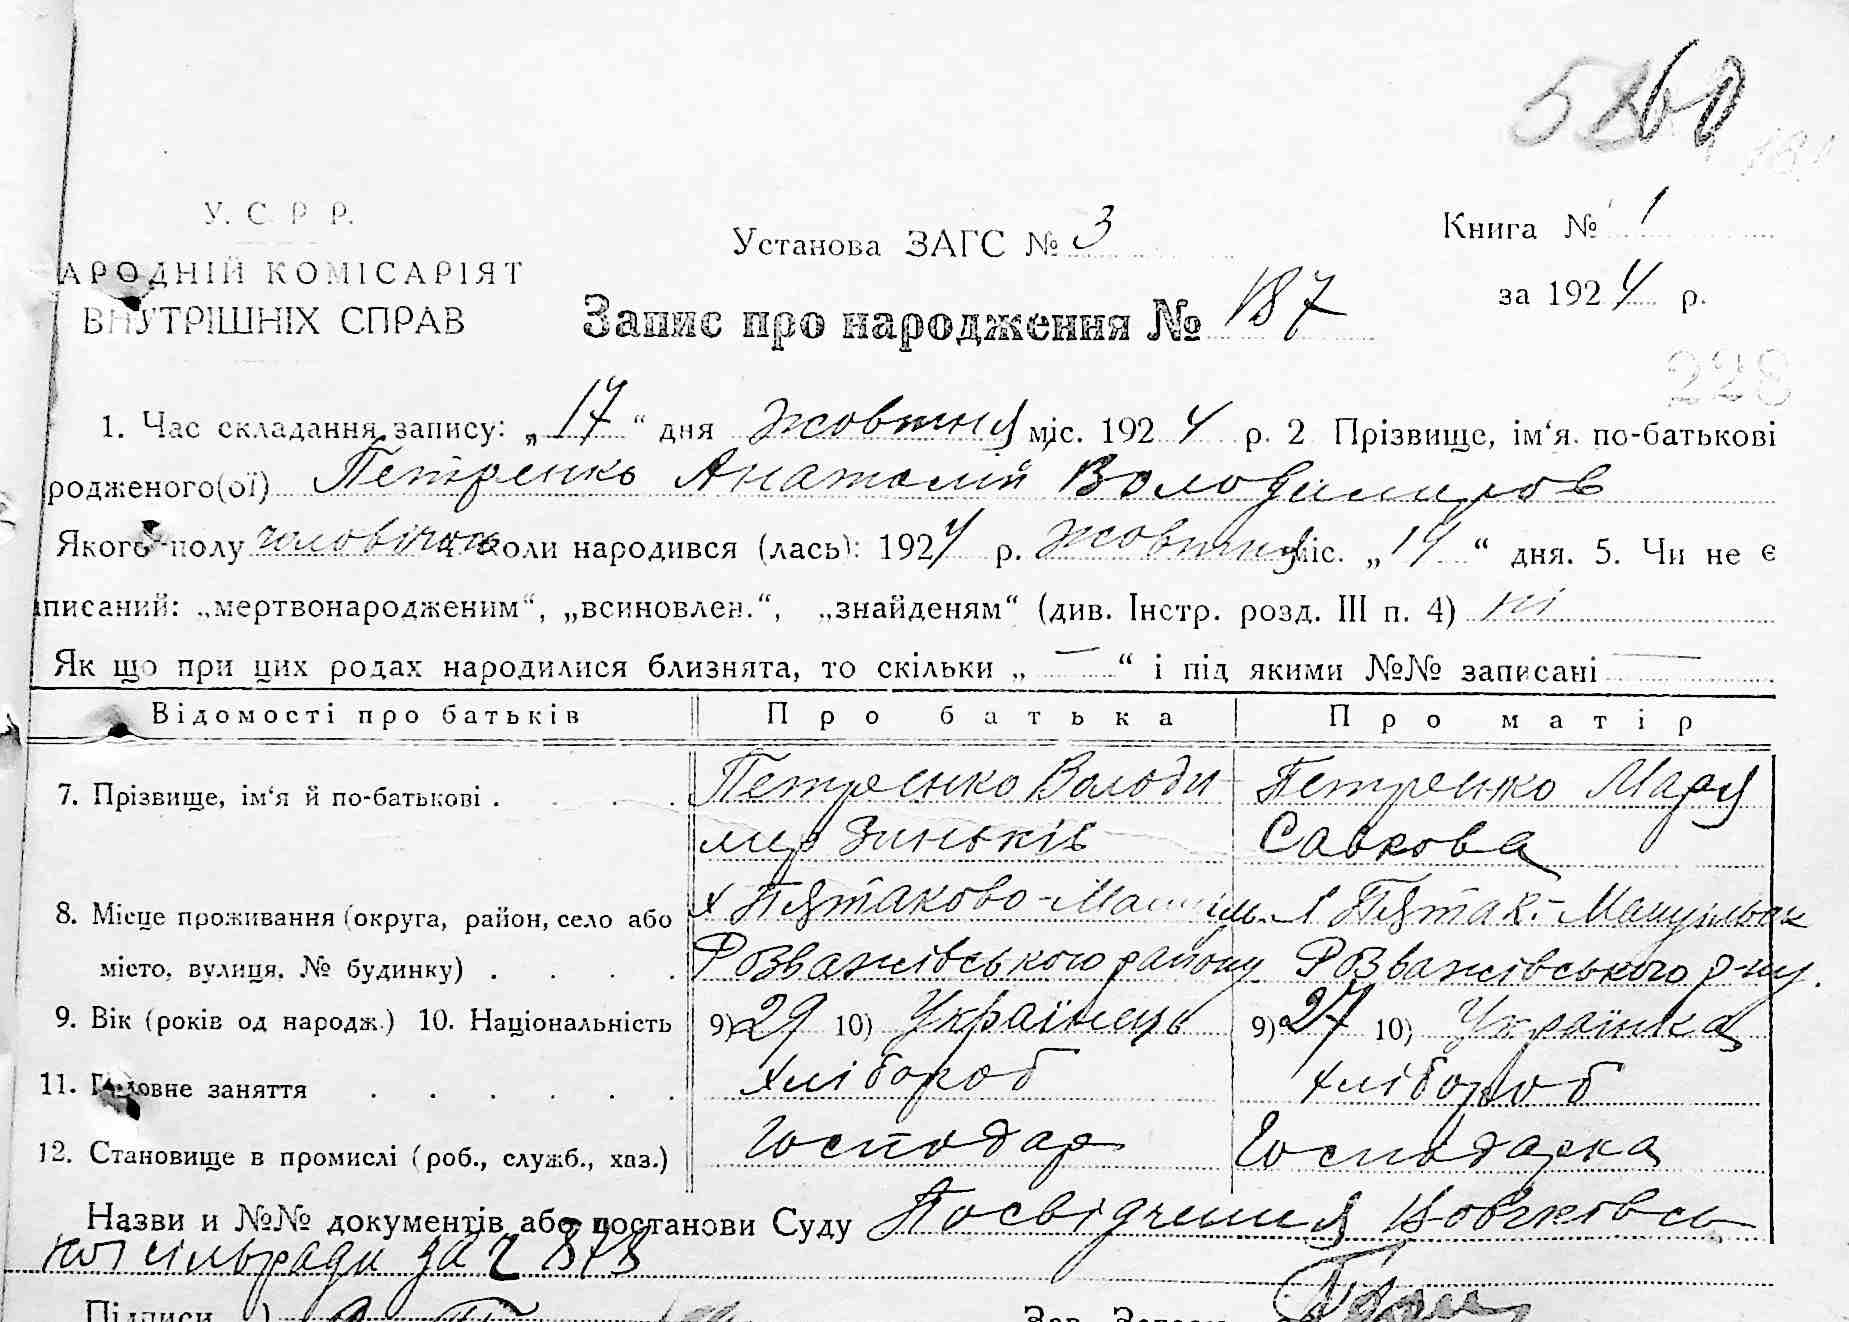 60
У. С. Р. Р.
АРОДНІЙ КОМІСАРІЯТ
ВНУТРІШНІХ СПРАВ
Установа ЗАГС № 3
Книга № 1
за 1924 р.
Запис про народження № 187
228
1. Час складання запису: „17“ дня жовтня міс. 1924 р. 2 Прізвище, ім‘я по-батькові
родженого(ої) Петренко Анатолій Володимиров
Якого полу чоловічого коли народився (лась): 1924 р. жовтня міс. „14“ дня. 5. Чи не є
писаний: „мертвонародженим“, „всиновлен.“, „знайденям“ (див. Інстр. розд. III п. 4) ні
Як що при цих родах народилися близнята, то скільки „—“ і під якими №№ записані —
Відомості про батьків Про батька Про матір
7. Прізвище, ім‘я й по-батькові . . . . Петренко Володи- Петренко Марія
мир Зиньків Савкова
8. Місце проживання (округа, район, село або х Пятаково-Мануїл. х Пятак.-Мануильск
місто, вулиця, № будинку) . . . . Розважівського району Розважівського р-ну.
9. Вік (років од народж.) 10. Національність 9) 29 10) Українець 9) 27 10) Українка
11. Головне заняття . . . . . . хлібороб хлібороб
12. Становище в промислі (роб., служб., хаз.) Господар Господарка
Назви и №№ документів або постанови Суду Посвідчення Вовчківсь
кої сільради за
Підписи
Зав. Загсом